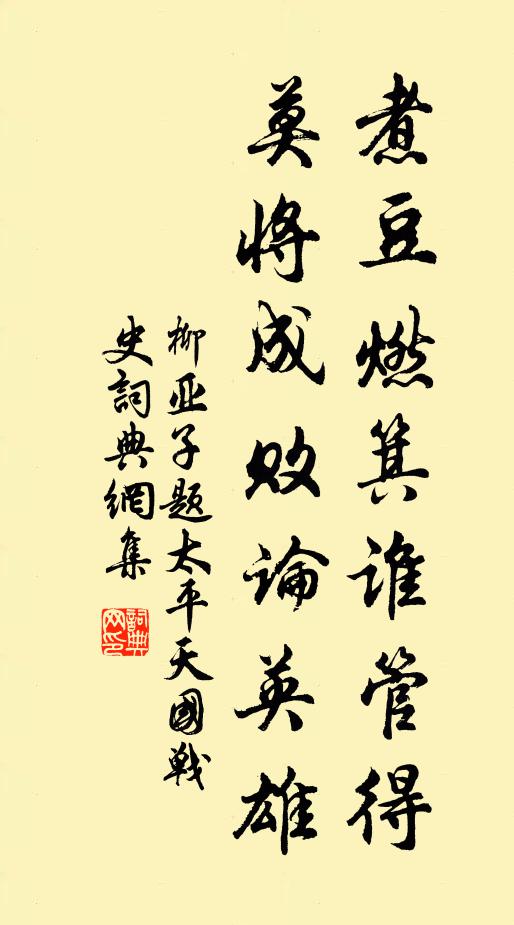 煮豆燃箕谁管得
莫将成败論英雄
柳亚子题太平天國戦
史詞典網集
詞典
网印